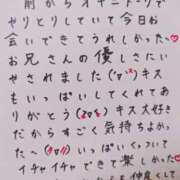 前からオキニトークで
やりとりしていて今日お
会いできてうれしかった〜♥
お兄さんの優しさにい
やされました(°∀°)キス
もいっぱいしてくれてあ
りがとう(≧∀≦)キス大好き
だからすごく気持ちよかっ
た〜(≧∀≦)いっぱいくっついて
イチャイチャできて楽しかった♥